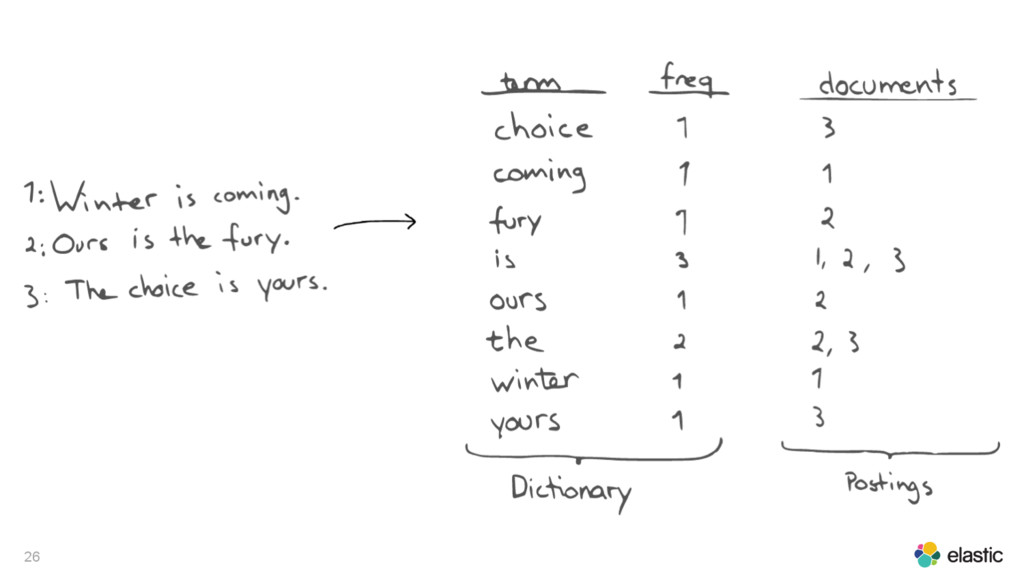 1: Winter is coming.
2: Ours is the fury.
3: The choice is yours.
term freq documents
choice 1 3
coming 1 1
fury 1 2
is 3 1, 2, 3
ours 1 2
the 2 2, 3
winter 1 1
yours 1 3
Dictionary Postings
26 elastic